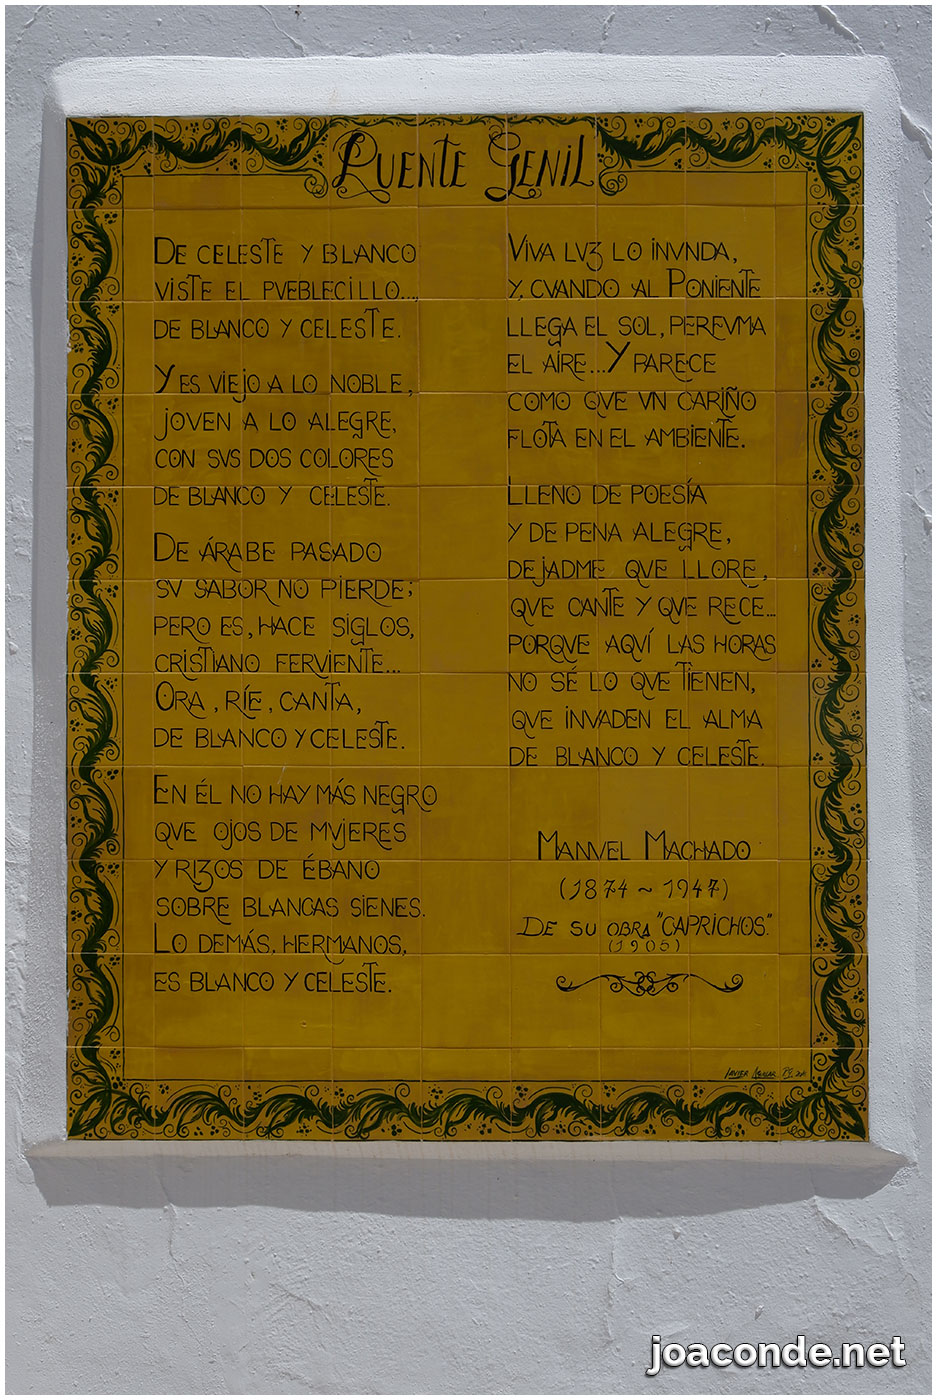 PUENTE GENIL
DE CELESTE Y BLANCO
VISTE EL PVEBLECILLO...,
DE BLANCO Y CELESTE.
Y ES VIEJO A LO NOBLE,
JOVEN A LO ALEGRE,
CON SVS DOS COLORES
DE BLANCO Y CELESTE.
DE ÁRABE PASADO
SV SABOR NO PIERDE;
PERO ES, HACE SIGLOS,
CRISTIANO FERVIENTE...
ORA, RÍE, CANTA,
DE BLANCO Y CELESTE.
EN ÉL NO HAY MÁS NEGRO
QVE OJOS DE MVJERES
Y RIZOS DE ÉBANO
SOBRE BLANCAS SIENES.
LO DEMÁS, HERMANOS,
ES BLANCO Y CELESTE.
VIVA LVZ LO INVNDA,
Y, CVANDO AL PONIENTE
LLEGA EL SOL, PERFVMA
EL AIRE... Y PARECE
COMO QVE VN CARIÑO
FLOTA EN EL AMBIENTE.
LLENO DE POESÍA
Y DE PENA ALEGRE,
DEJADME QVE LLORE,
QVE CANTE Y QVE RECE...
PORQVE AQVÍ LAS HORAS
NO SÉ LO QVE TIENEN,
QVE INVADEN EL ALMA
DE BLANCO Y CELESTE.
MANVEL MACHADO
(1874 ~ 1947)
DE SU OBRA "CAPRICHOS".
(1905)
JAVIER AGUILAR
joaconde.net